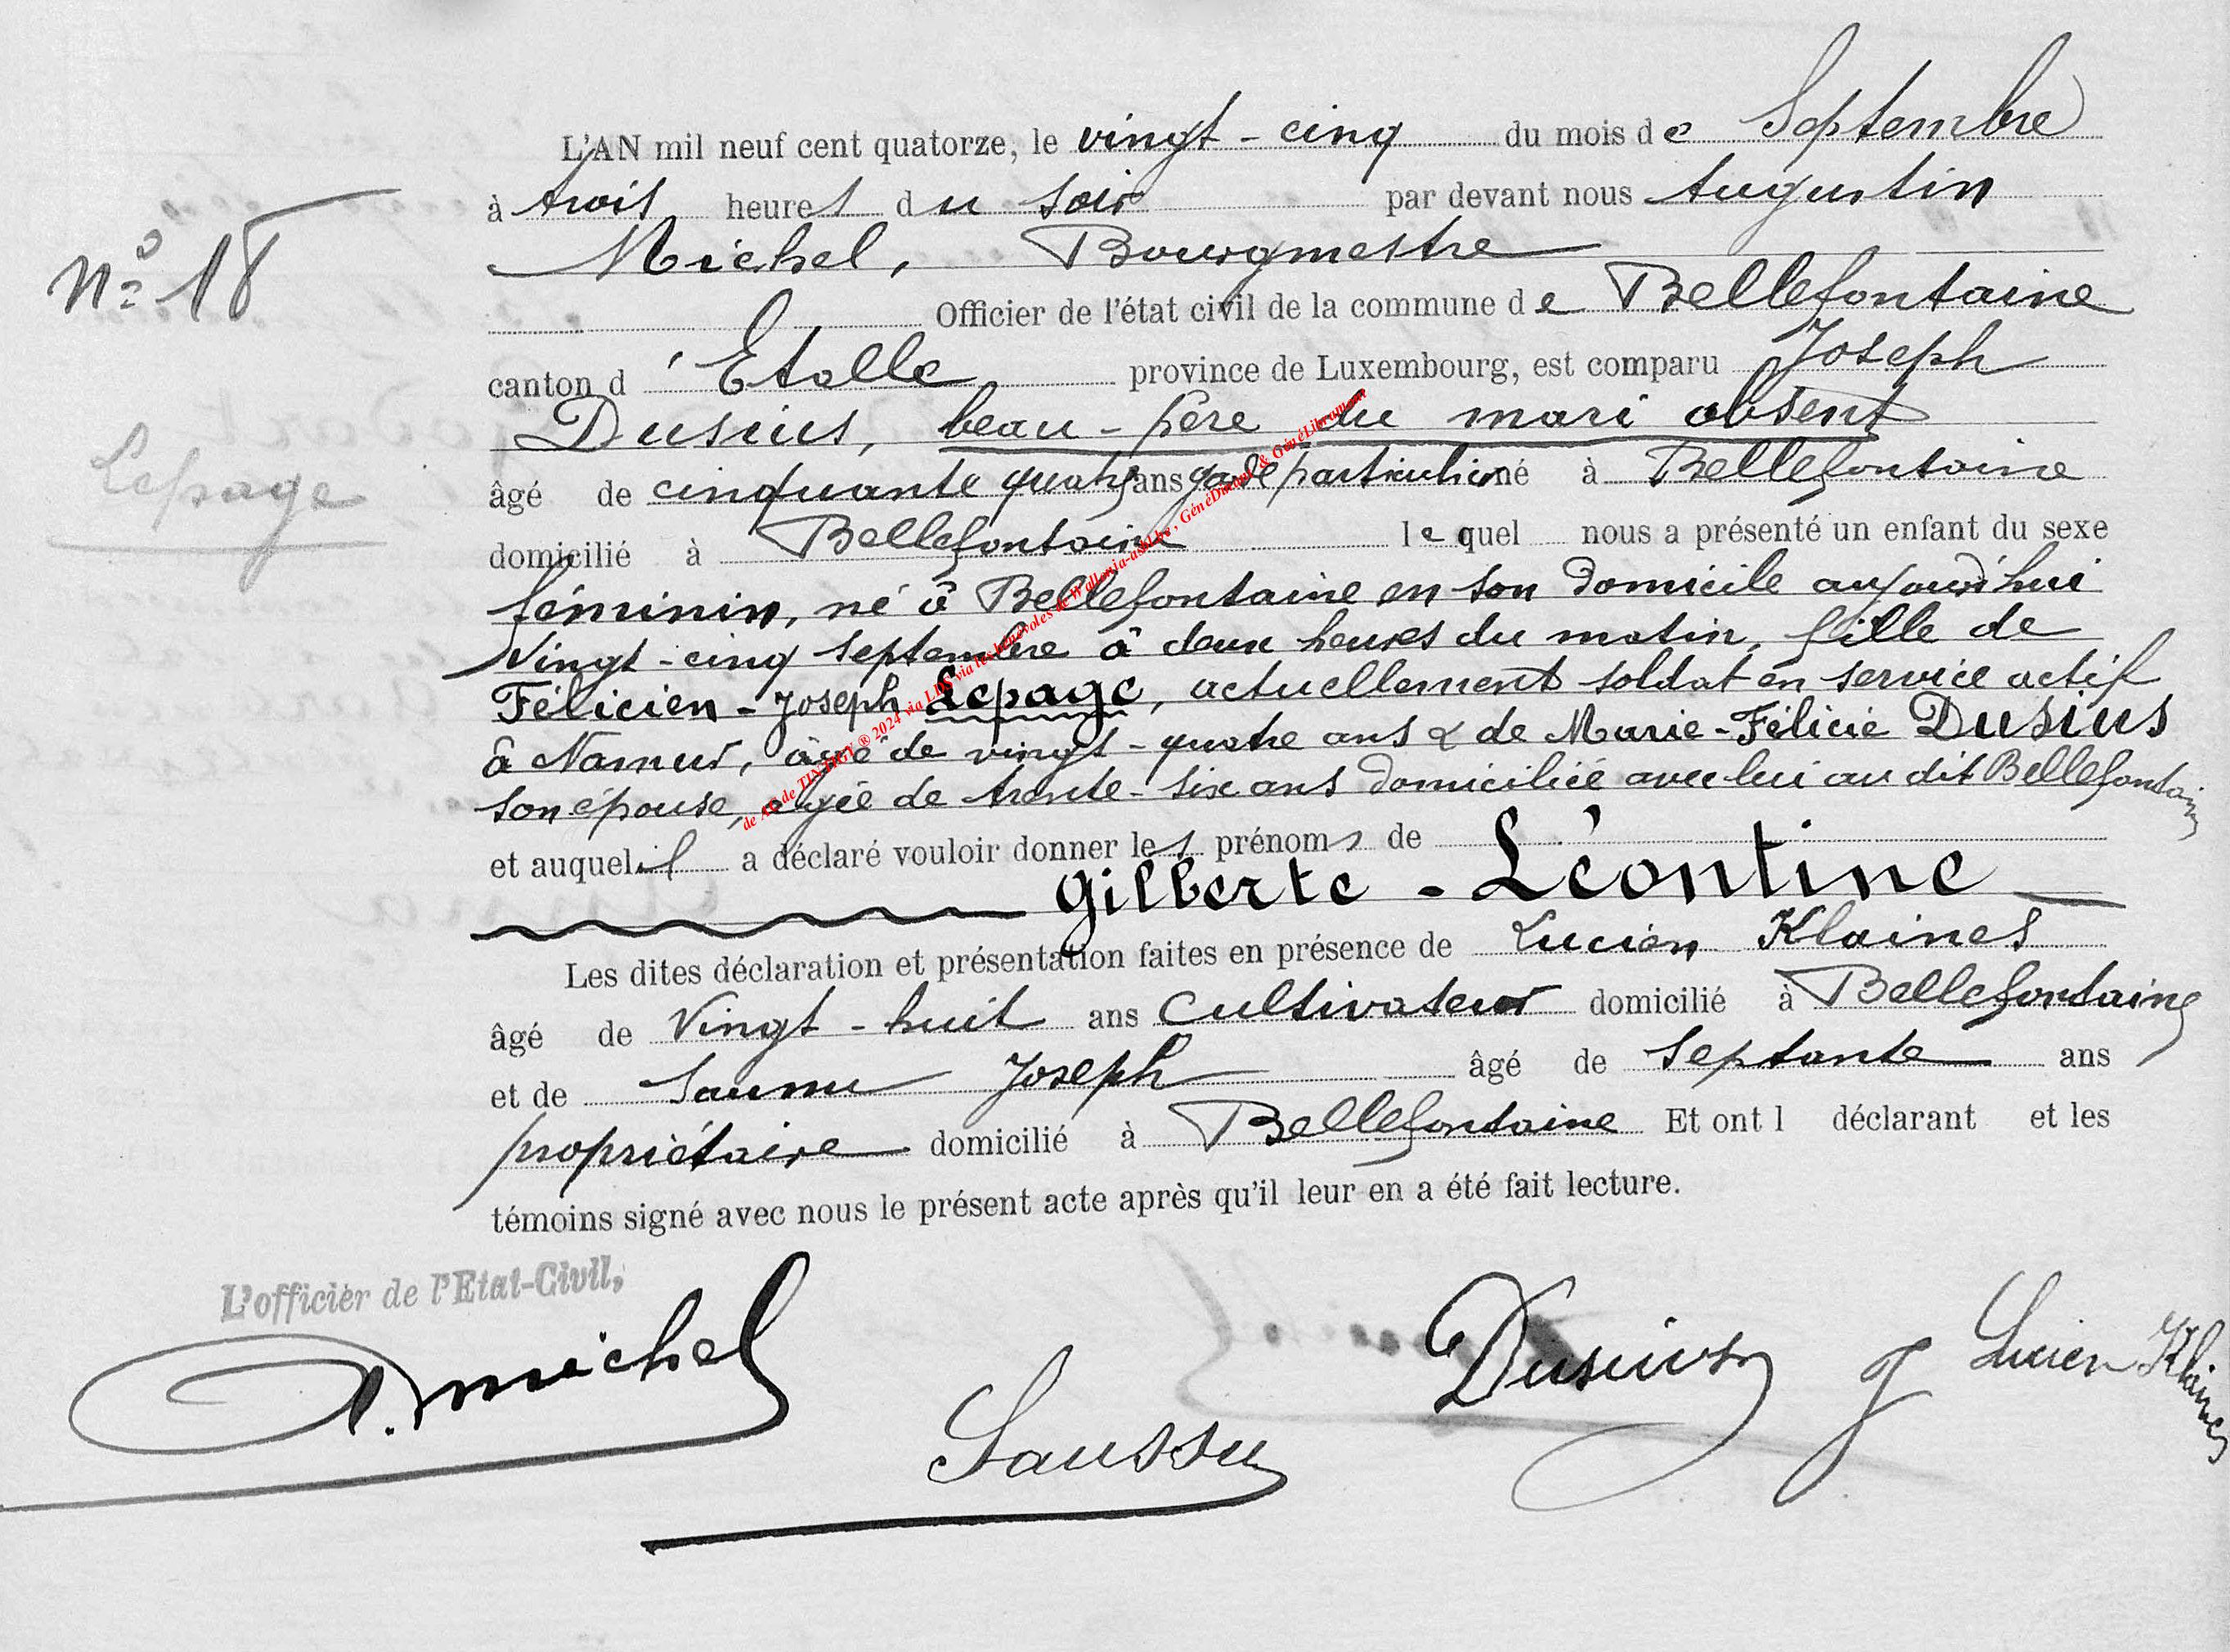 L'AN mil neuf cent quatorze, le vingt-cinq du mois de Septembre
à trois heures du soir par devant nous Augustin
Michel, Bourgmestre
Officier de l'état civil de la commune de Bellefontaine
canton d'Etalle province de Luxembourg, est comparu Joseph
Dusius, beau-père du mari absent
âgé de cinquante quatre ans garde particulier né à Bellefontaine
domicilié à Bellefontaine lequel nous a présenté un enfant du sexe
féminin, né à Bellefontaine en son domicile aujourd'hui
vingt-cinq septembre à deux heures du matin, fille de
Félicien-Joseph Lepage, actuellement soldat en service actif
à Namur, âgé de vingt-quatre ans & de Marie-Félicie Dusius
son épouse, âgée de trente-six ans domiciliée avec lui au dit Bellefontaine
et auquel il a déclaré vouloir donner les prénoms de
Gilberte-Léontine
Les dites déclaration et présentation faites en présence de Lucien Klaines
âgé de Vingt-huit ans cultivateur domicilié à Bellefontaine
et de Joseph âgé de septante ans
propriétaire domicilié à Bellefontaine Et ont l déclarant et les
témoins signé avec nous le présent acte après qu'il leur en a été fait lecture.
N° 18
Lepage
L'officier de l'Etat-Civil,
A. Michel
Saussu
Dusius J
Lucien Klaines
de TINTIGNY ® 2024 via LDS via les bénévoles de Wallonia-asbl.be, GénéDinant & GénéLibramont